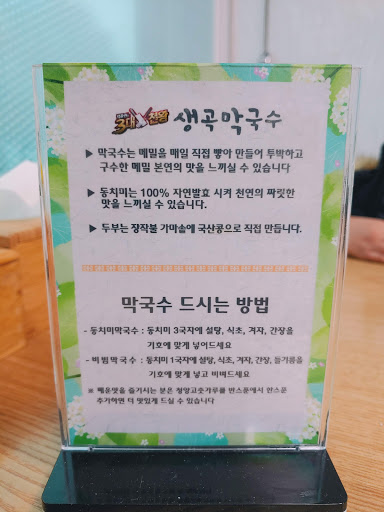 3대천왕 생곡막국수
▶ 막국수는 메밀을 매일 직접 빻아 만들어 투박하고
구수한 메밀 본연의 맛을 느끼실 수 있습니다
▶ 동치미는 100% 자연발효 시켜 천연의 짜릿한
맛을 느끼실 수 있습니다.
▶ 두부는 장작불 가마솥에 국산콩으로 직접 만듭니다.
막국수 드시는 방법
- 동치미막국수 : 동치미 3국자에 설탕, 식초, 겨자, 간장을
기호에 맞게 넣어드세요
- 비빔막국수 : 동치미 1국자에 설탕, 식초, 겨자, 간장, 들기름을
기호에 맞게 넣고 비벼드세요
※ 매운맛을 즐기시는 분은 청양고춧가루를 반스푼에서 한스푼
추가하면 더 맛있게 드실 수 있습니다